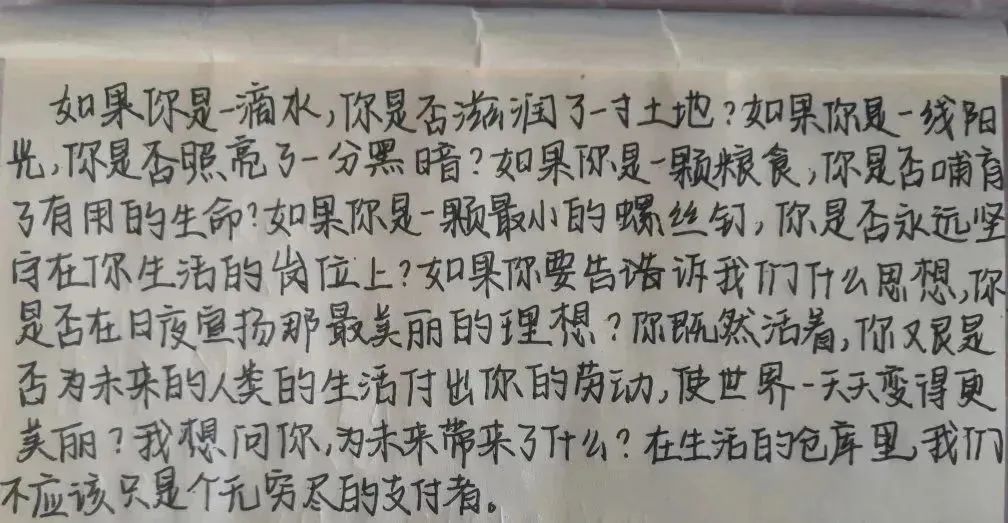 如果你是一滴水,你是否滋润了一寸土地?如果你是一线阳
光,你是否照亮了一分黑暗?如果你是一颗粮食,你是否哺育
了有用的生命?如果你是一颗最小的螺丝钉,你是否永远坚
守在你生活的岗位上?如果你要告诉我们什么思想,你
是否在日夜宣扬那最美丽的理想?你既然活着,你又是
否为未来的人类的生活付出你的劳动,使世界一天天变得更
美丽?我想问你,为未来带来了什么?在生活的仓库里,我们
不应该只是个无穷尽的支付者。